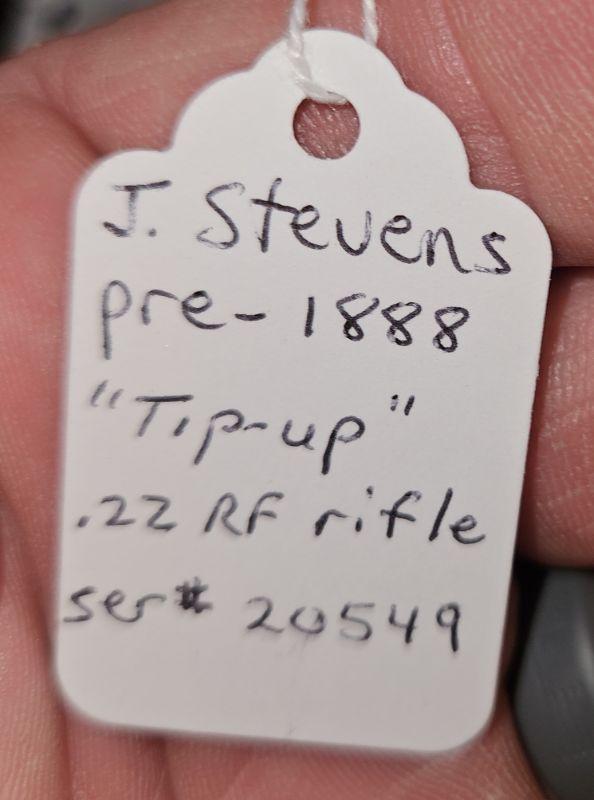 J. Stevens
pre-1888
"Tip-up"
.22 RF rifle
ser# 20549